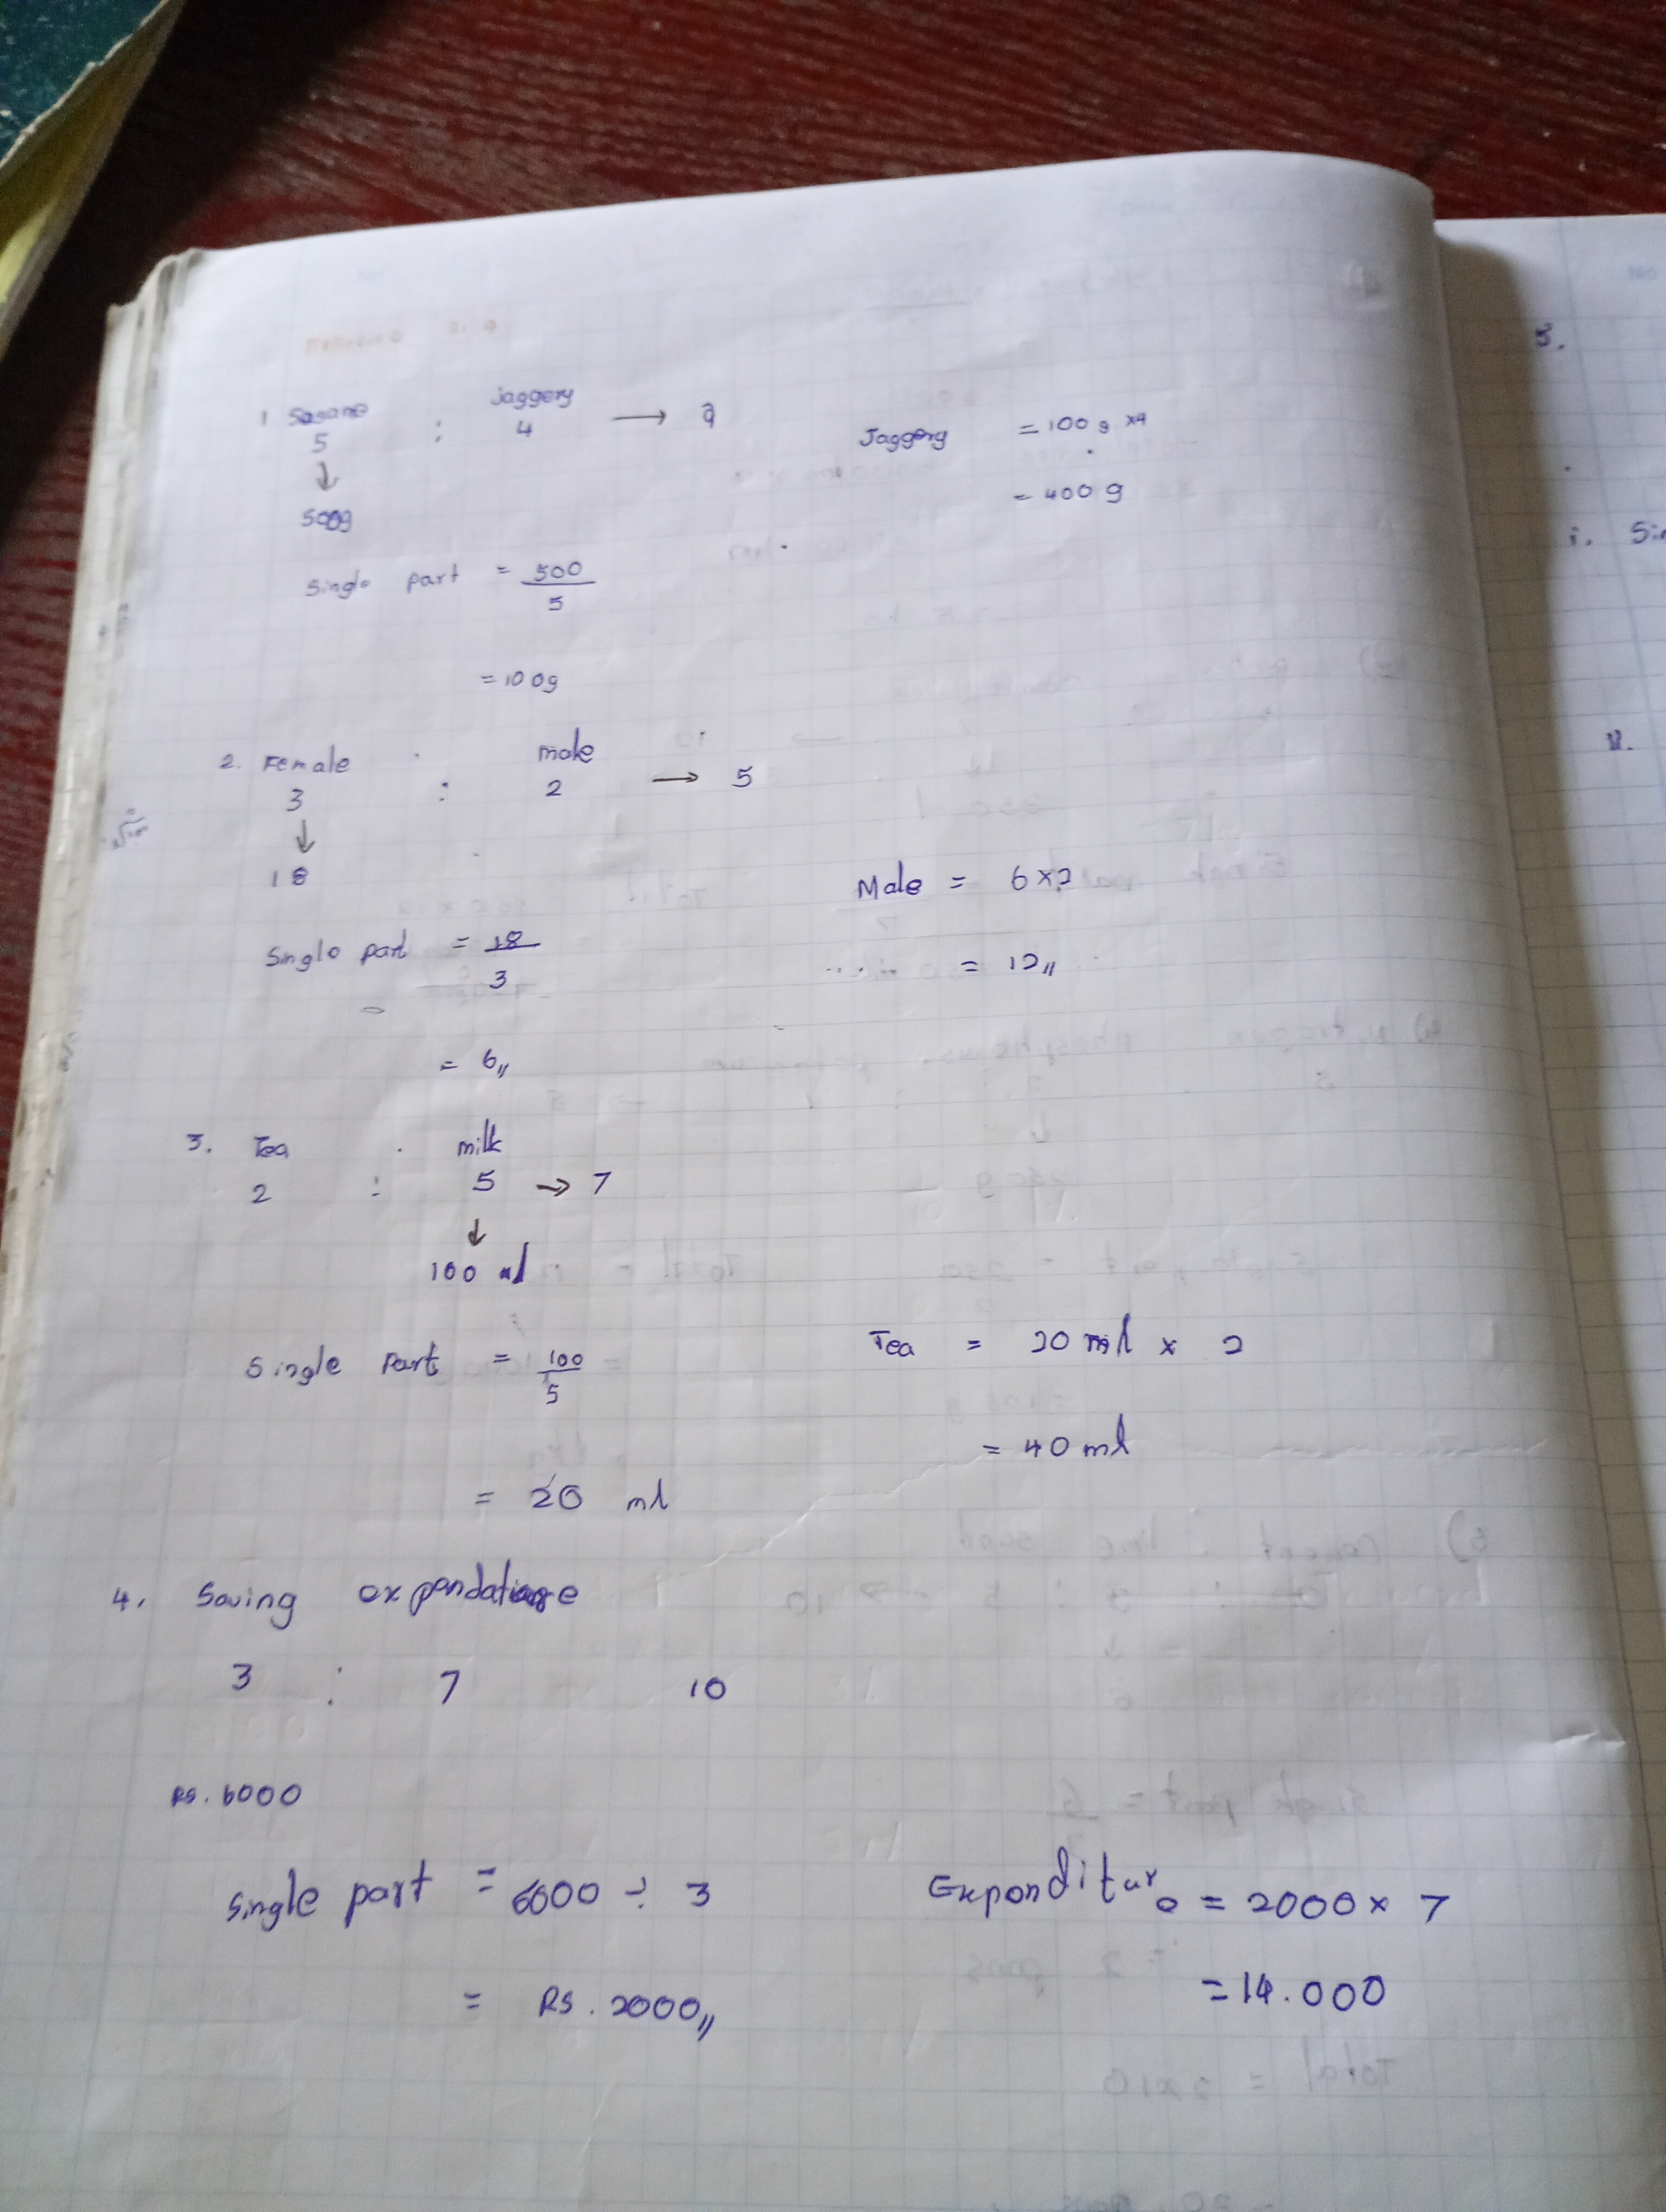 Exercise 2.9
1. Sesame : Jaggery → 9
5 : 4
↓
500g
Single part = 500/5
= 100g
Jaggery = 100 g x4
= 400 g
2. Female : male
3 : 2 → 5
↓
18
Single part = 18/3
= 6,,
Male = 6 x 2
= 12,,
3. Tea : milk
2 : 5 → 7
↓
100 ml
Single Part = 100/5
= 20 ml
Tea = 20 ml x 2
= 40 ml
4. Saving
3 : 7 10
Rs. 6000
Single part = 6000 ÷ 3
= RS. 2000,,
Expenditure = 2000 x 7
= 14.000
No
5.
i. Sin
ii.